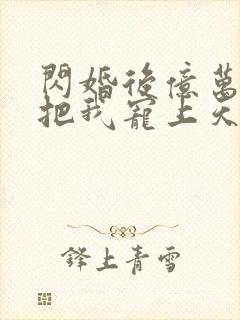 閃婚後億萬
把我寵上天
鋒上青雪